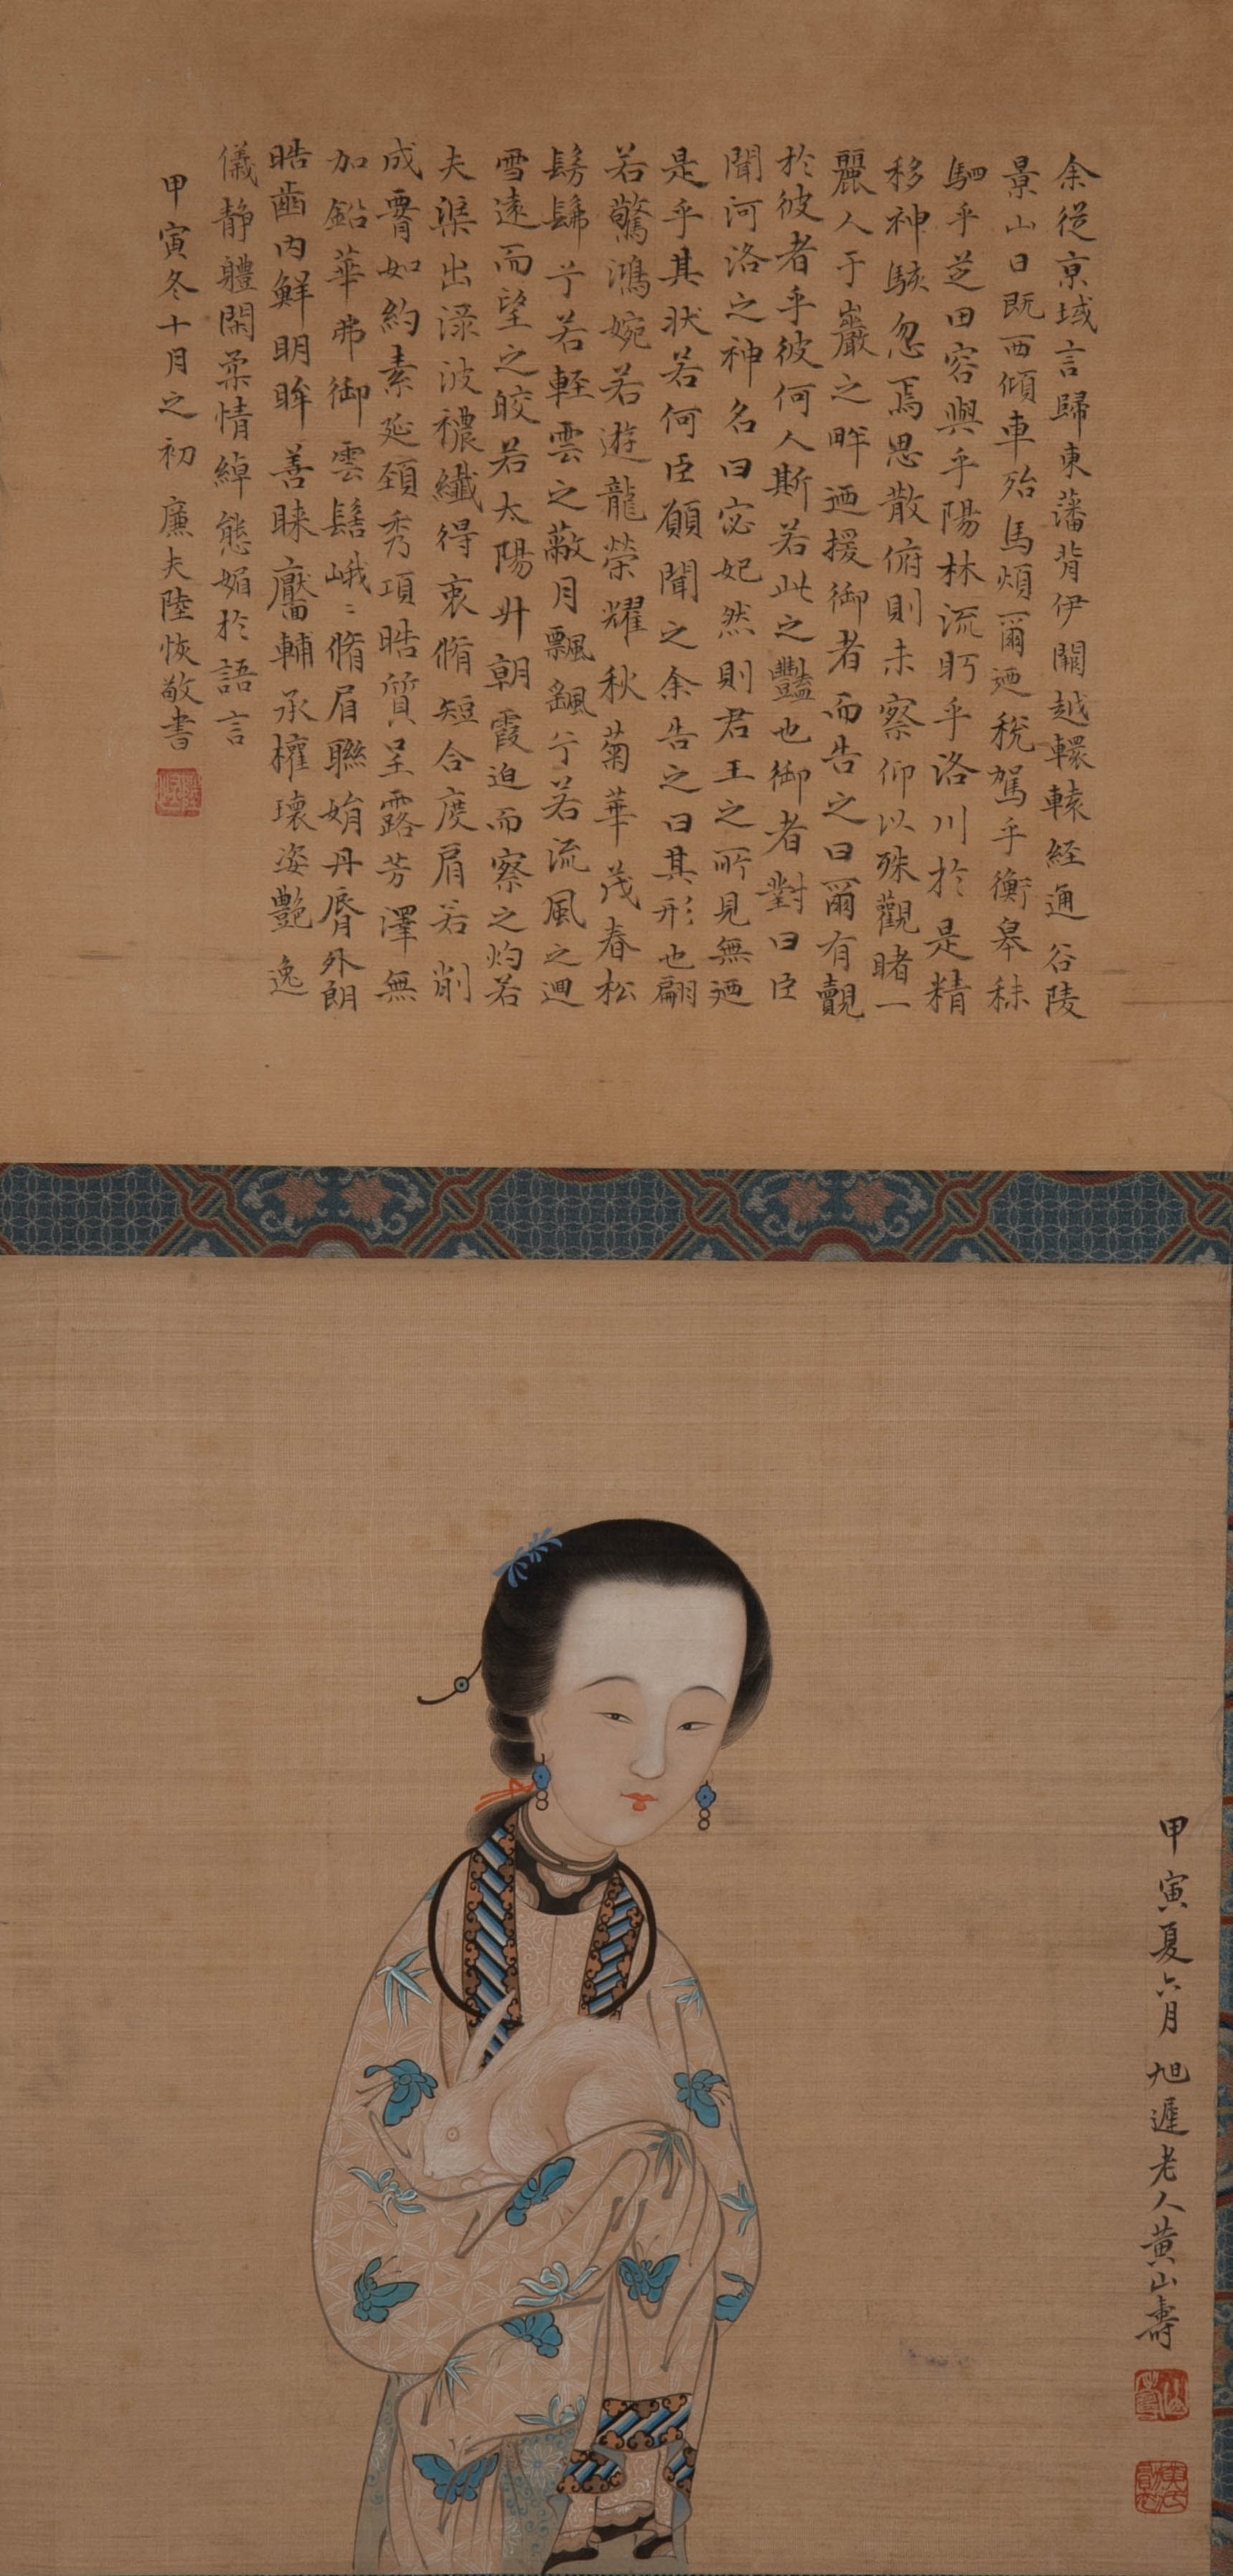 余從京域言歸東藩背伊闕越轘轅經通谷陵
景山日既西傾車殆馬煩爾迺稅駕乎蘅皋秣
駟乎芝田容與乎陽林流眄乎洛川於是精
移神駭忽焉思散俯則未察仰以殊觀睹一
麗人于巖之畔迺援御者而告之曰爾有覿
於彼者乎彼何人斯若此之豔也御者對曰臣
聞河洛之神名曰宓妃然則君王之所見無迺
是乎其狀若何臣願聞之余告之曰其形也翩
若驚鴻婉若遊龍榮耀秋菊華茂春松
髣髴兮若輕雲之蔽月飄颻兮若流風之迴
雪遠而望之皎若太陽升朝霞迫而察之灼若
夫渠出淥波穠纖得衷脩短合度肩若削
成署如約素延頸秀項皓質呈露芳澤無
加鉛華弗御雲髻峨〻脩眉聯娟丹脣外朗
皓齒內鮮明眸善睞靨輔承權瓌姿艷逸
儀靜體閑柔情綽態媚於語言
甲寅冬十月之初 廉夫陸恢敬書
甲寅夏六月 旭遲老人黃山壽